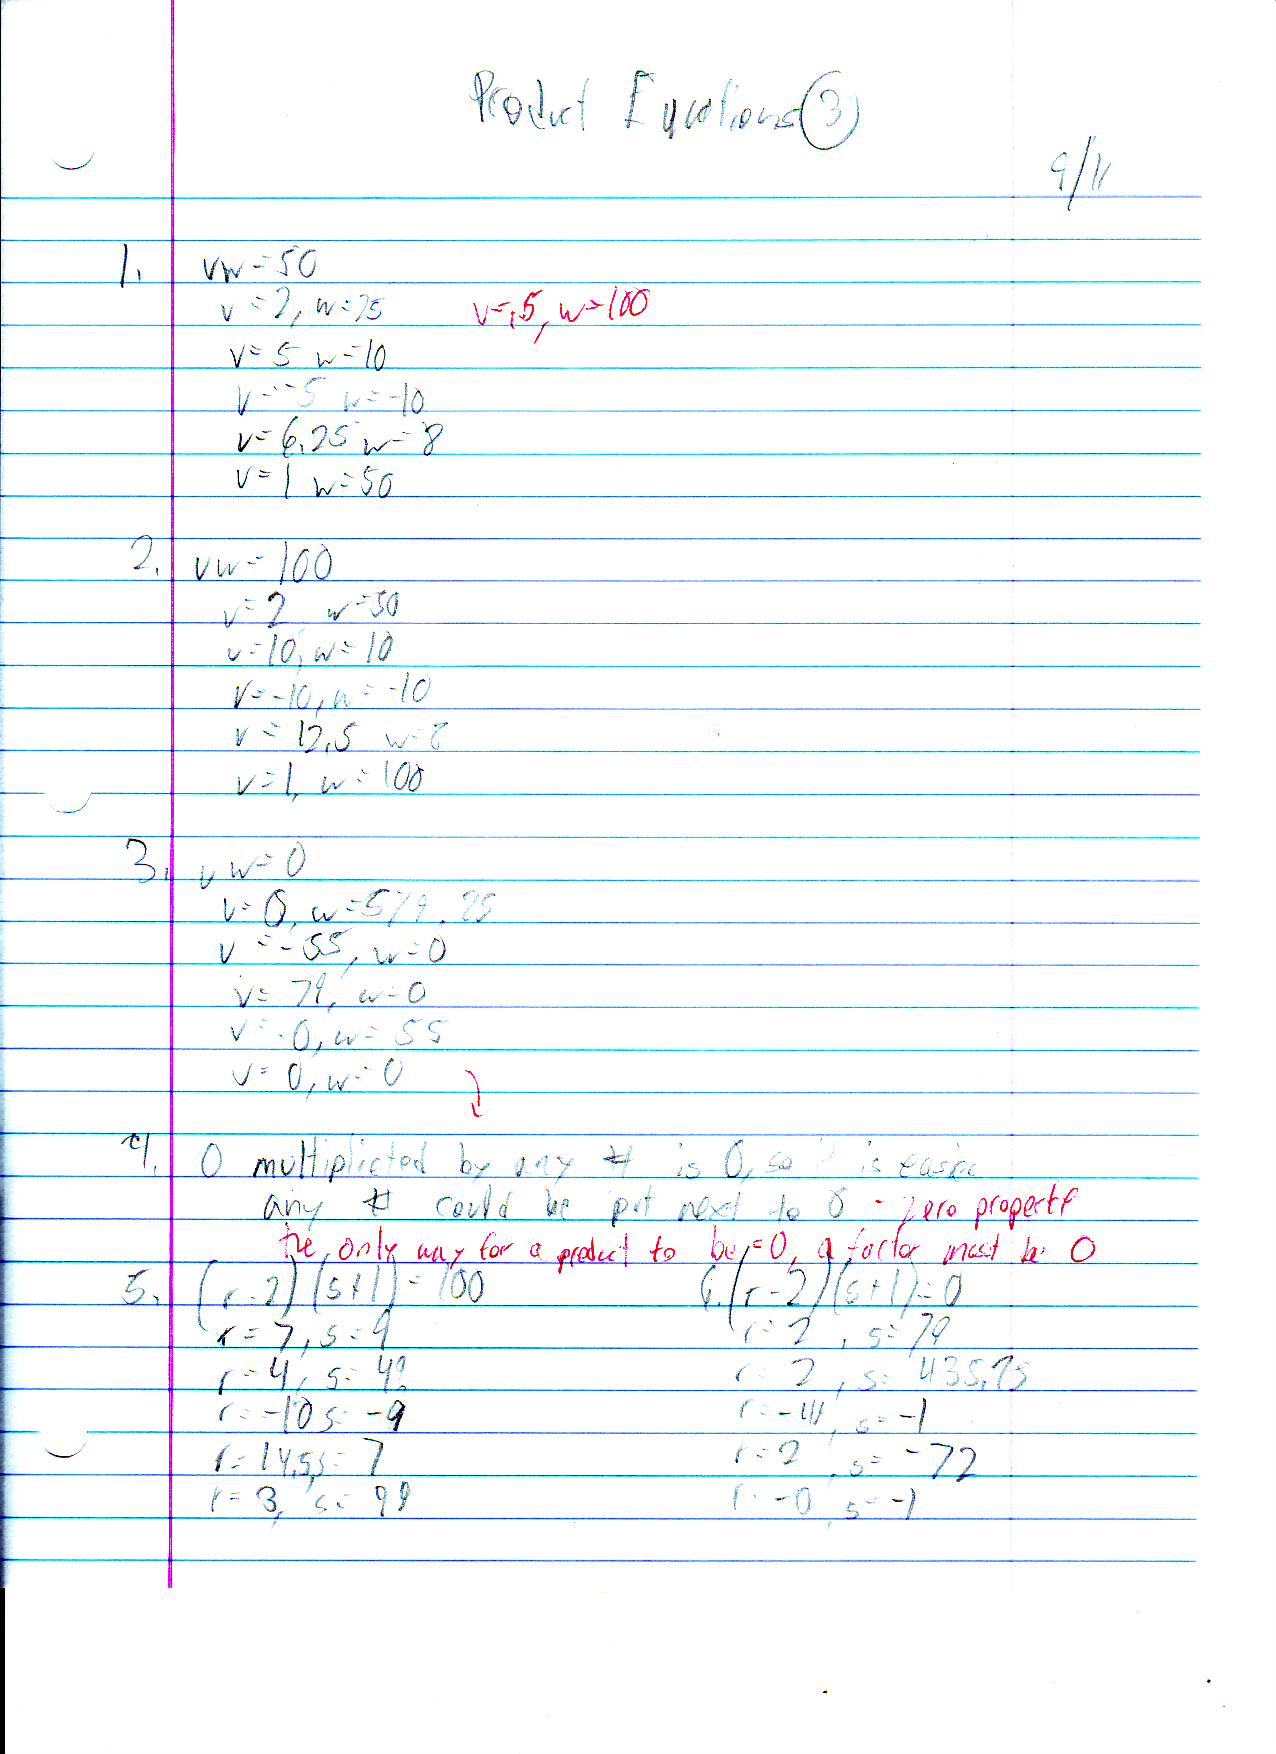 Product Equations 3
9/11
1. vw=50
v=2, w=25 v=.5, w=100
v=5 w=10
v=-5 w=-10
v=6.25 w=8
v=1 w=50
2. vw=100
v=2 w=50
v=10, w=10
v=-10, w=-10
v=12.5 w=8
v=1, w=100
3. vw=0
v=0, w=579.25
v=-55, w=0
v=79, w=0
v=-0, w=55
v=0, w=0
4. 0 multiplicted by any # is 0, so is easier
any # could be put next to 0 - zero property
the only way for a product to be =0, a factor must be 0
5. (r-2)(s+1)=100 6. (r-2)(s+1)=0
r=7, s=9 r=2, s=79
r=4, s=49 r=2, s=435.75
r=-10 s=-9 s=-1
r=14.5 s=7 r=2, s=-72
r=3, s=99 r=-0, s=-1